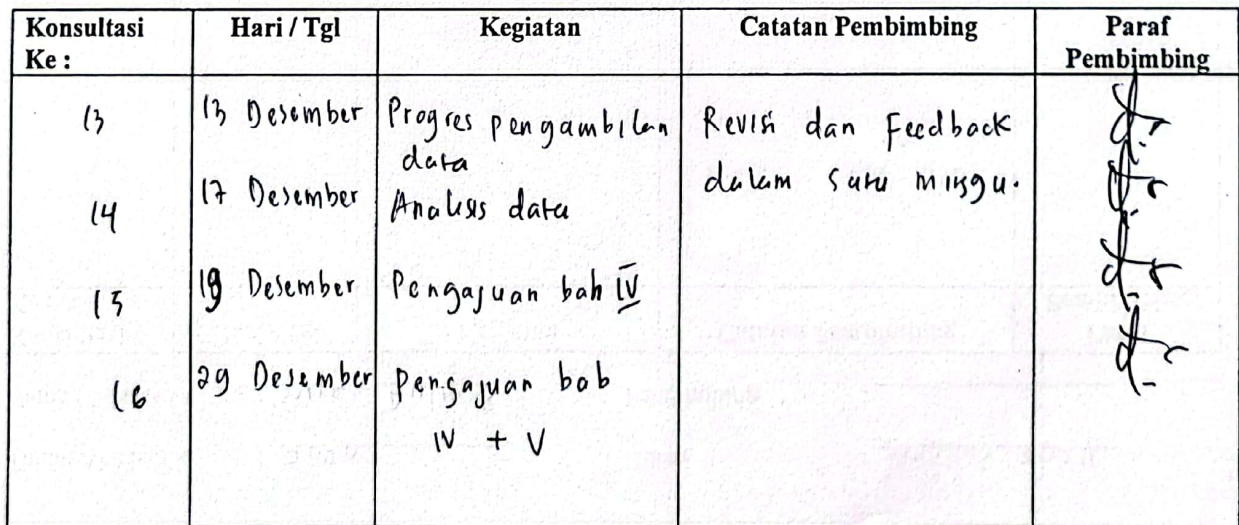 Konsultasi Ke :
Hari / Tgl
Kegiatan
Catatan Pembimbing
Paraf Pembimbing
13
13 Desember
Progres pengambilan
data
Revisi dan Feedback
dalam satu minggu.
14
17 Desember
Analisis data
15
19 Desember
Pengajuan bab IV
16
29 Desember
Pengajuan bab
IV + V